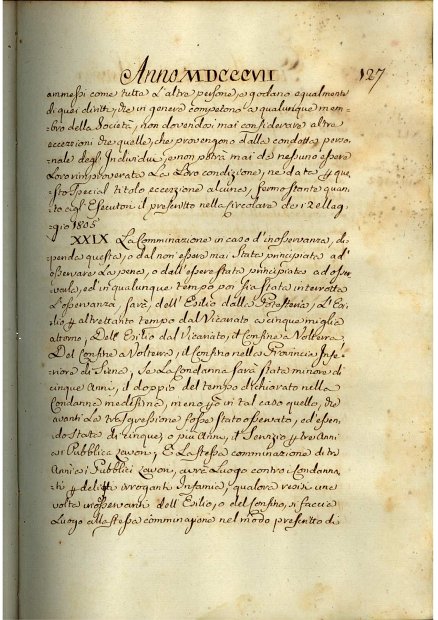 Anno MDCCCVII
127
ammessi come tutte l'altre persone, e godano egualmente
di quei diritti, che in genere competono a qualunque mem-
bro della Società, non dovendosi mai considerare altre
eccezioni che quelle, che provengono dalla condotta perso-
nale degl'Individui, e non potrà mai da nessuno essere
Loro rimproverata La Loro condizione, nè data p que-
sto special titolo eccezione alcuna, fermo stante quan-
to agl'Esecutori il prescritto nella Circolare de 12 Mag-
gio 1805
XXIX La Comminazione in caso d'inosservanza, di-
penda questa, o dal non essere mai Stata principiata ad
osservare La pena, o dall'essere stata principiata ad osser-
varla, ed in qualunque tempo poi sia stata interrotta
L'osservanza, sarà, dell'Esilio dalla Potesteria, L'Esi-
lio p altrettanto tempo dal Vicariato a cinque miglia
attorno, Dell'Esilio dal Vicariato, il Confine a Volterra
Del Confine a Volterra, il Confino nella Provincia Infe-
riore di Siena, se La Condanna sarà stata minore di
cinque Anni, il doppio del tempo dichiarato nella
Condanna medesima, meno però in tal caso quello, che
avanti La trasgressione fosse stato osservato, ed essen-
do Stata di cinque, o più Anni, il Servizio p tre Anni
ai Pubblici Lavori, E La stessa comminazione di tre
Anni ai Pubblici Lavori, avrà Luogo contro i Condanna-
ti p delitti irroganti Infamia, qualora resisi una
volta inosservanti dell'Esilio, o del Confino, si faccia
Luogo alla stessa comminazione nel modo prescritto di